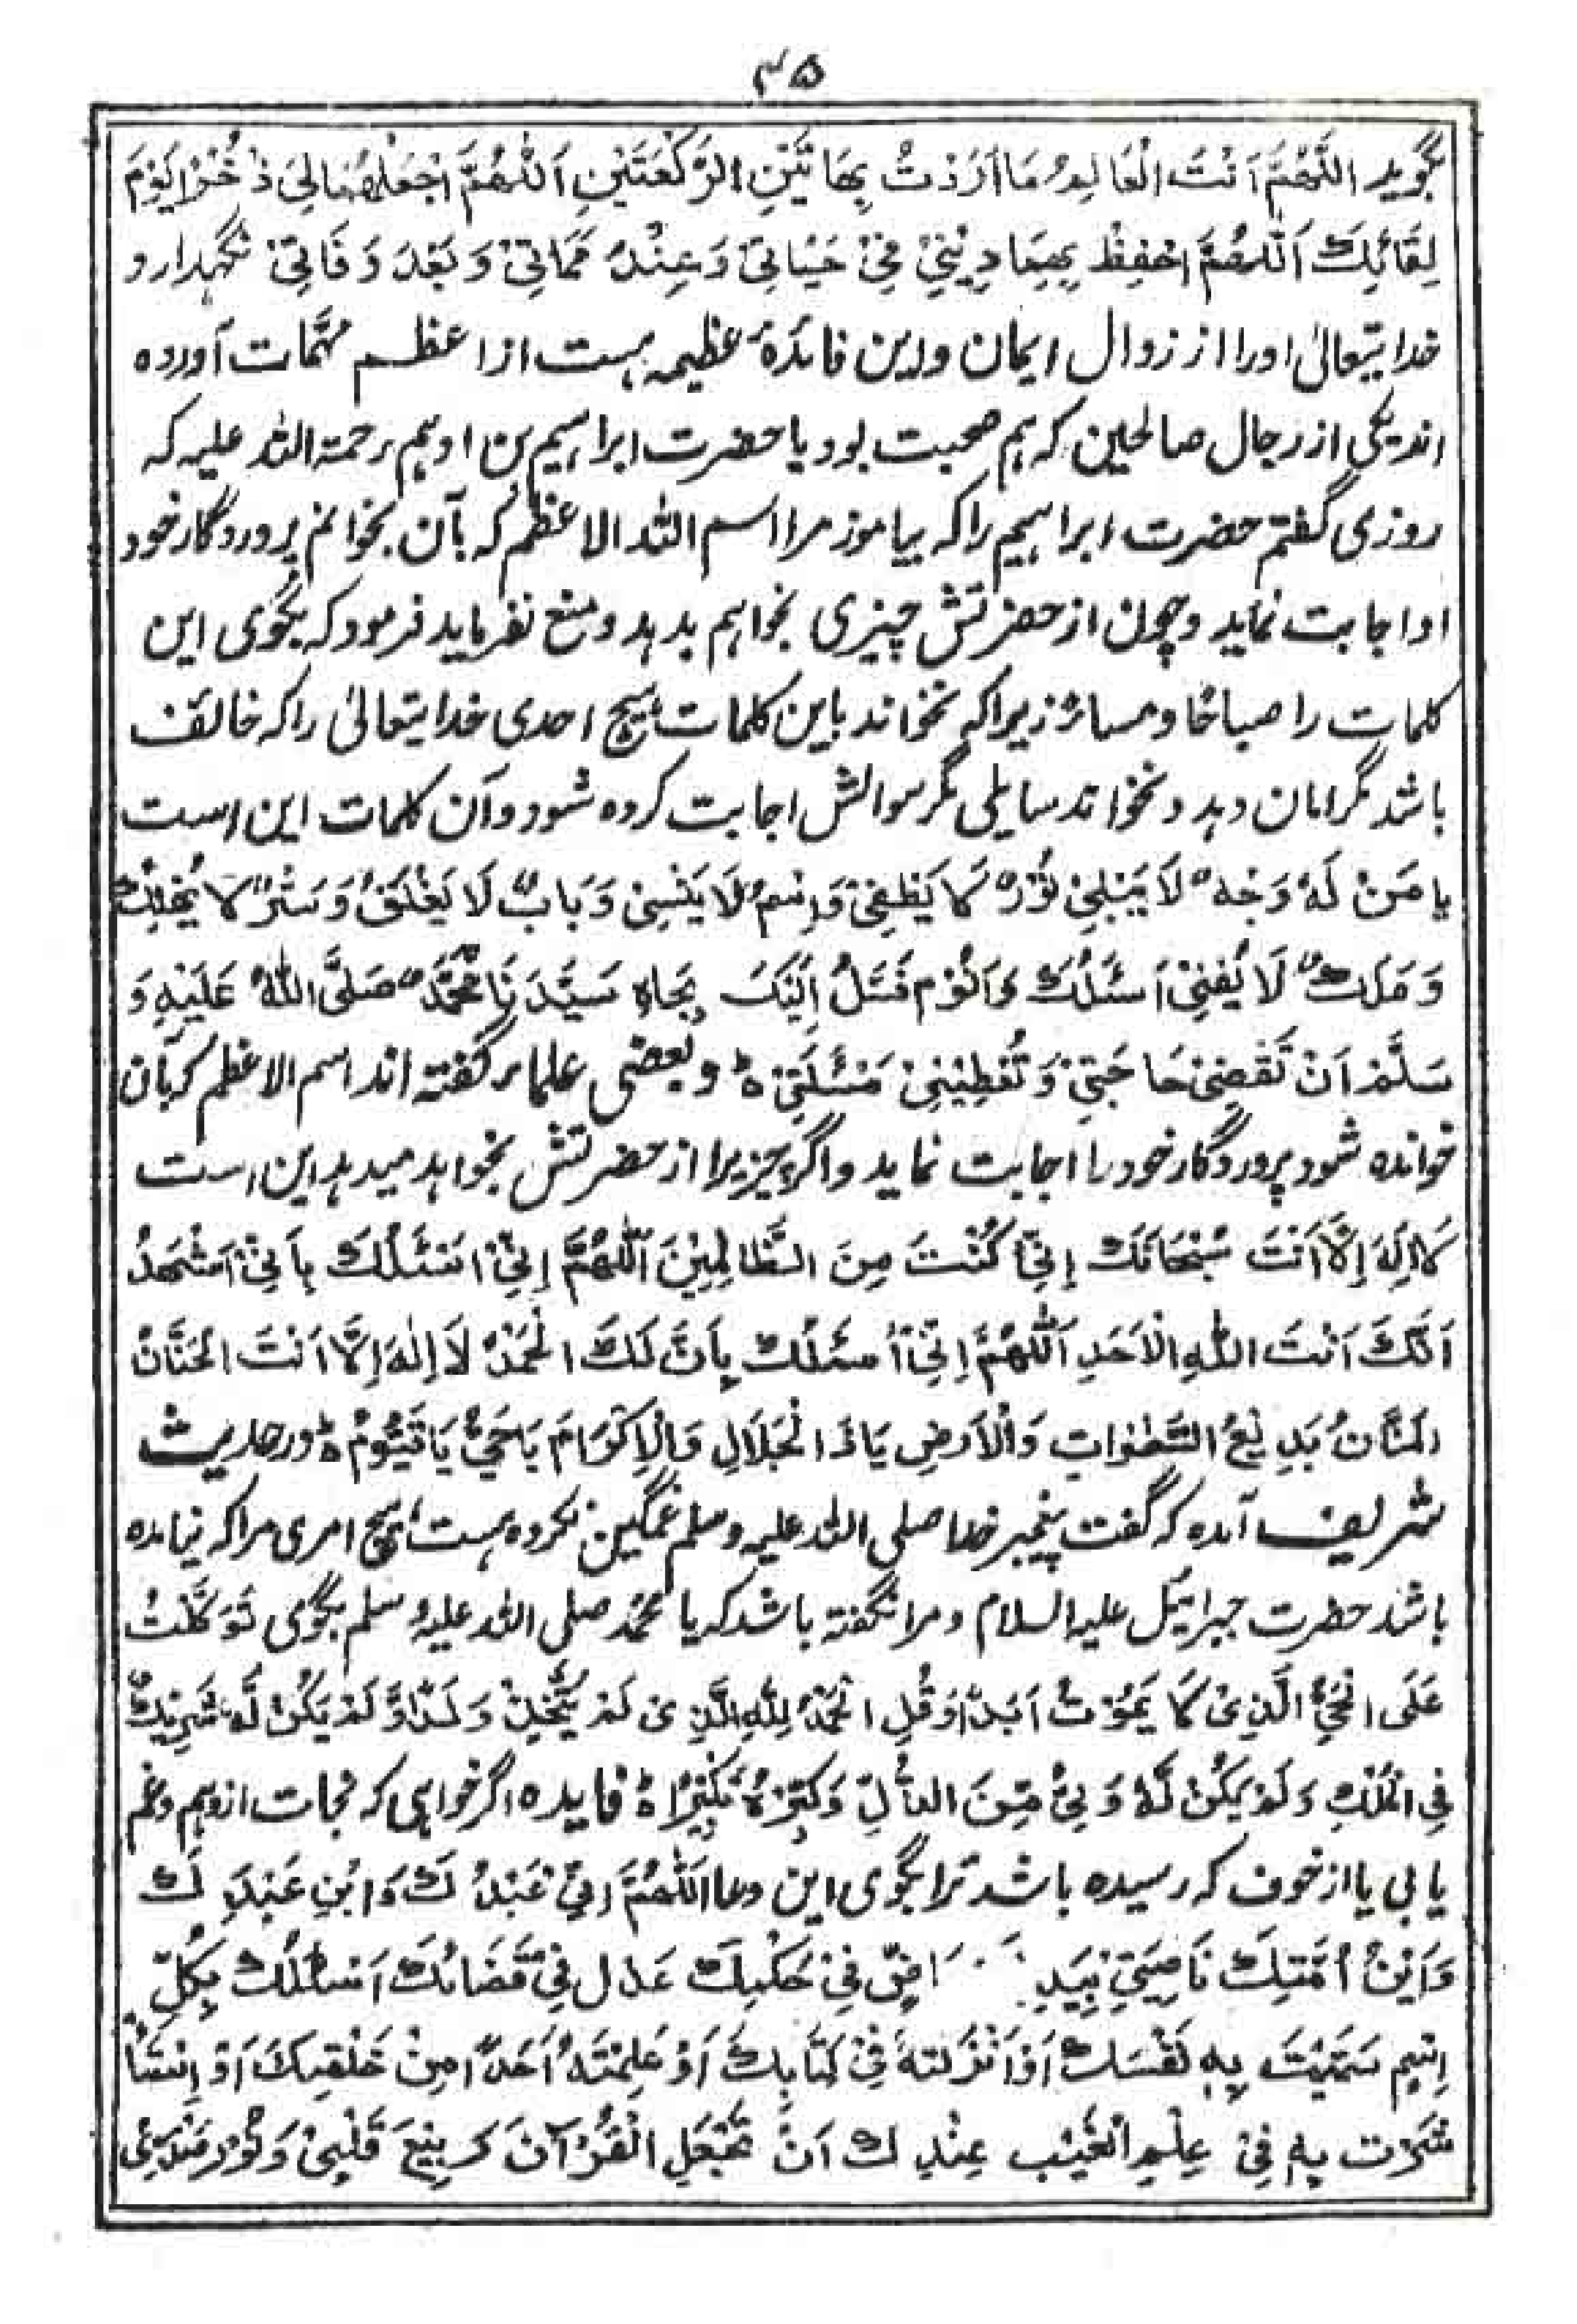 ۳۵
بگوید اَللّٰهُمَّ اَنْتَ الْعَالِمُ مَا اَرَدْتُ بِهَاتَیْنِ الرَّکْعَتَیْنِ اَللّٰهُمَّ اجْعَلْهُمَا لِیْ ذُخْرًا یَوْمَ
لِقَائِكَ اَللّٰهُمَّ احْفِظْ بِهِمَا دِیْنِیْ فِیْ حَیَاتِیْ وَعِنْدَ مَمَاتِیْ وَبَعْدَ وَفَاتِیْ نگهدارد
خدایتعالیٰ اورا از زوال ایمان ودین فائدۂ عظیمہ ہست از اعظم مہمّات آورده
اند یکی از رجال صالحین کہ ہم صحبت بود با حضرت ابراہیم بن ادہم رحمۃ اللہ علیہ کہ
روزی گفتم حضرت ابراہیم را کہ بیاموز مرا اسم اللہ الاعظم کہ بآن بخوانم پروردگار خود
او اجابت نماید وچون از حضرتش چیزی بخواہم بدہد ومنع نفرماید فرمود کہ بگوی این
کلمات را صباحًا ومساءً زیراکہ نخواند باین کلمات ہیچ احدی خدایتعالیٰ را کہ خائف
باشد مگر امان دہد ونخواند سایلی مگر سوالش اجابت کرده شود وآن کلمات این است
یا مَنْ لَهٗ وَجْهٌ لَا یَبْلیٰ نُوْرٌ لَا یَطْفِیْ وَاِسْمٌ لَا یَنْسِیْ وَبَابٌ لَا یَغْلَقُ وَسَتْرٌ لَا یُهْتِكُ
وَمَلَكٌ لَا یَفْنِیْ اَسْئَلُكَ وَاَتَوَسَّلُ اِلَیْكَ بِجَاهِ سَیِّدِنَا مُحَمَّدٍ صَلَّی اللّٰهُ عَلَیْهِ وَ
سَلَّمْ اَنْ تَقْضِیْ حَاجَتِیْ وَتُعْطِیْنِیْ مَسْئَلَتِیْ ہ وبعضی علماء گفتہ اند اسم الاعظم کہ بآن
خوانده شود پروردگار خود را اجابت نماید واگر چیزیرا از حضرتش بخواہد میدہد این است
لَا اِلٰهَ اِلَّا اَنْتَ سُبْحَانَكَ اِنِّیْ کُنْتَ مِنَ الظَّالِمِیْنَ اَللّٰهُمَّ اِنِّیْ اَسْئَلُكَ بِاَنِّیْ اَشْهَدُ
اَنَّكَ اَنْتَ اللّٰهِ الْاَحَدِ اَللّٰهُمَّ اِنِّیْ اَسْئَلُكَ بِاَنَّ لَكَ الْحَمْدُ لَا اِلٰهَ اِلَّا اَنْتَ الْحَنَّانُ
الْمَنَّانُ بَدِیْعُ السَّمٰوَاتِ وَالْاَرْضِ یَا ذَا الْجَلَالِ وَالْاِکْرَامَ یَا حَیُّ یَا قَیُّوْمُ ہ در حدیث
شریف آمده کہ گفت پیغمبر خدا صلی اللہ علیہ وسلم غمگین نکرده ہست ہیچ امری مرا کہ نیامده
باشد حضرت جبرائیل علیہ السلام ومرا نگفتہ باشد کہ یا محمّد صلی اللہ علیہ وسلم بگوی تَوَکَّلْتُ
عَلَی الْحَیِّ الَّذِیْ لَا یَمُوْتُ اَبَدًا وَقُلِ الْحَمْدُ لِلّٰهِ الَّذِیْ لَمْ یَتَّخِذْ وَلَدًا وَّلَمْ یَکُنْ لَّهٗ شَرِیْكٌ
فِی الْمُلْكِ وَلَمْ یَکُنْ لَّهٗ وَلِیٌّ مِّنَ الذُّلِّ وَکَبِّرْهُ تَکْبِیْرًا ہ فایده اگر خواہی کہ نجات از ہم وغم
یابی یا از خوف کہ رسیده باشد ترا بگوی این دعا اَللّٰهُمَّ اِنِّیْ عَبْدُكَ وَابْنِ عَبْدِكَ
وَابْنُ اَمَتِكَ نَاصِیَتِیْ بِیَدِ فِیْ حُکْمِكَ عَدْلٌ فِیْ قَضَائِكَ اَسْئَلُكَ بِکُلِّ
اِسْمٍ سَمَّیْتَ بِهٖ نَفْسَكَ اَوْ اَنْزَلْتَهٗ فِیْ کِتَابِكَ اَوْ عَلِمْتَهٗ اَحَدًا مِنْ خَلْقِكَ اَوْ اِسْتَا
ثَرْتَ بِهٖ فِیْ عِلْمِ الْغَیْبِ عِنْدِكَ اَنْ تَجْعَلِ الْقُرْآنَ رَبِیْعَ قَلْبِیْ وَنُوْرَ صَدْرِیْ